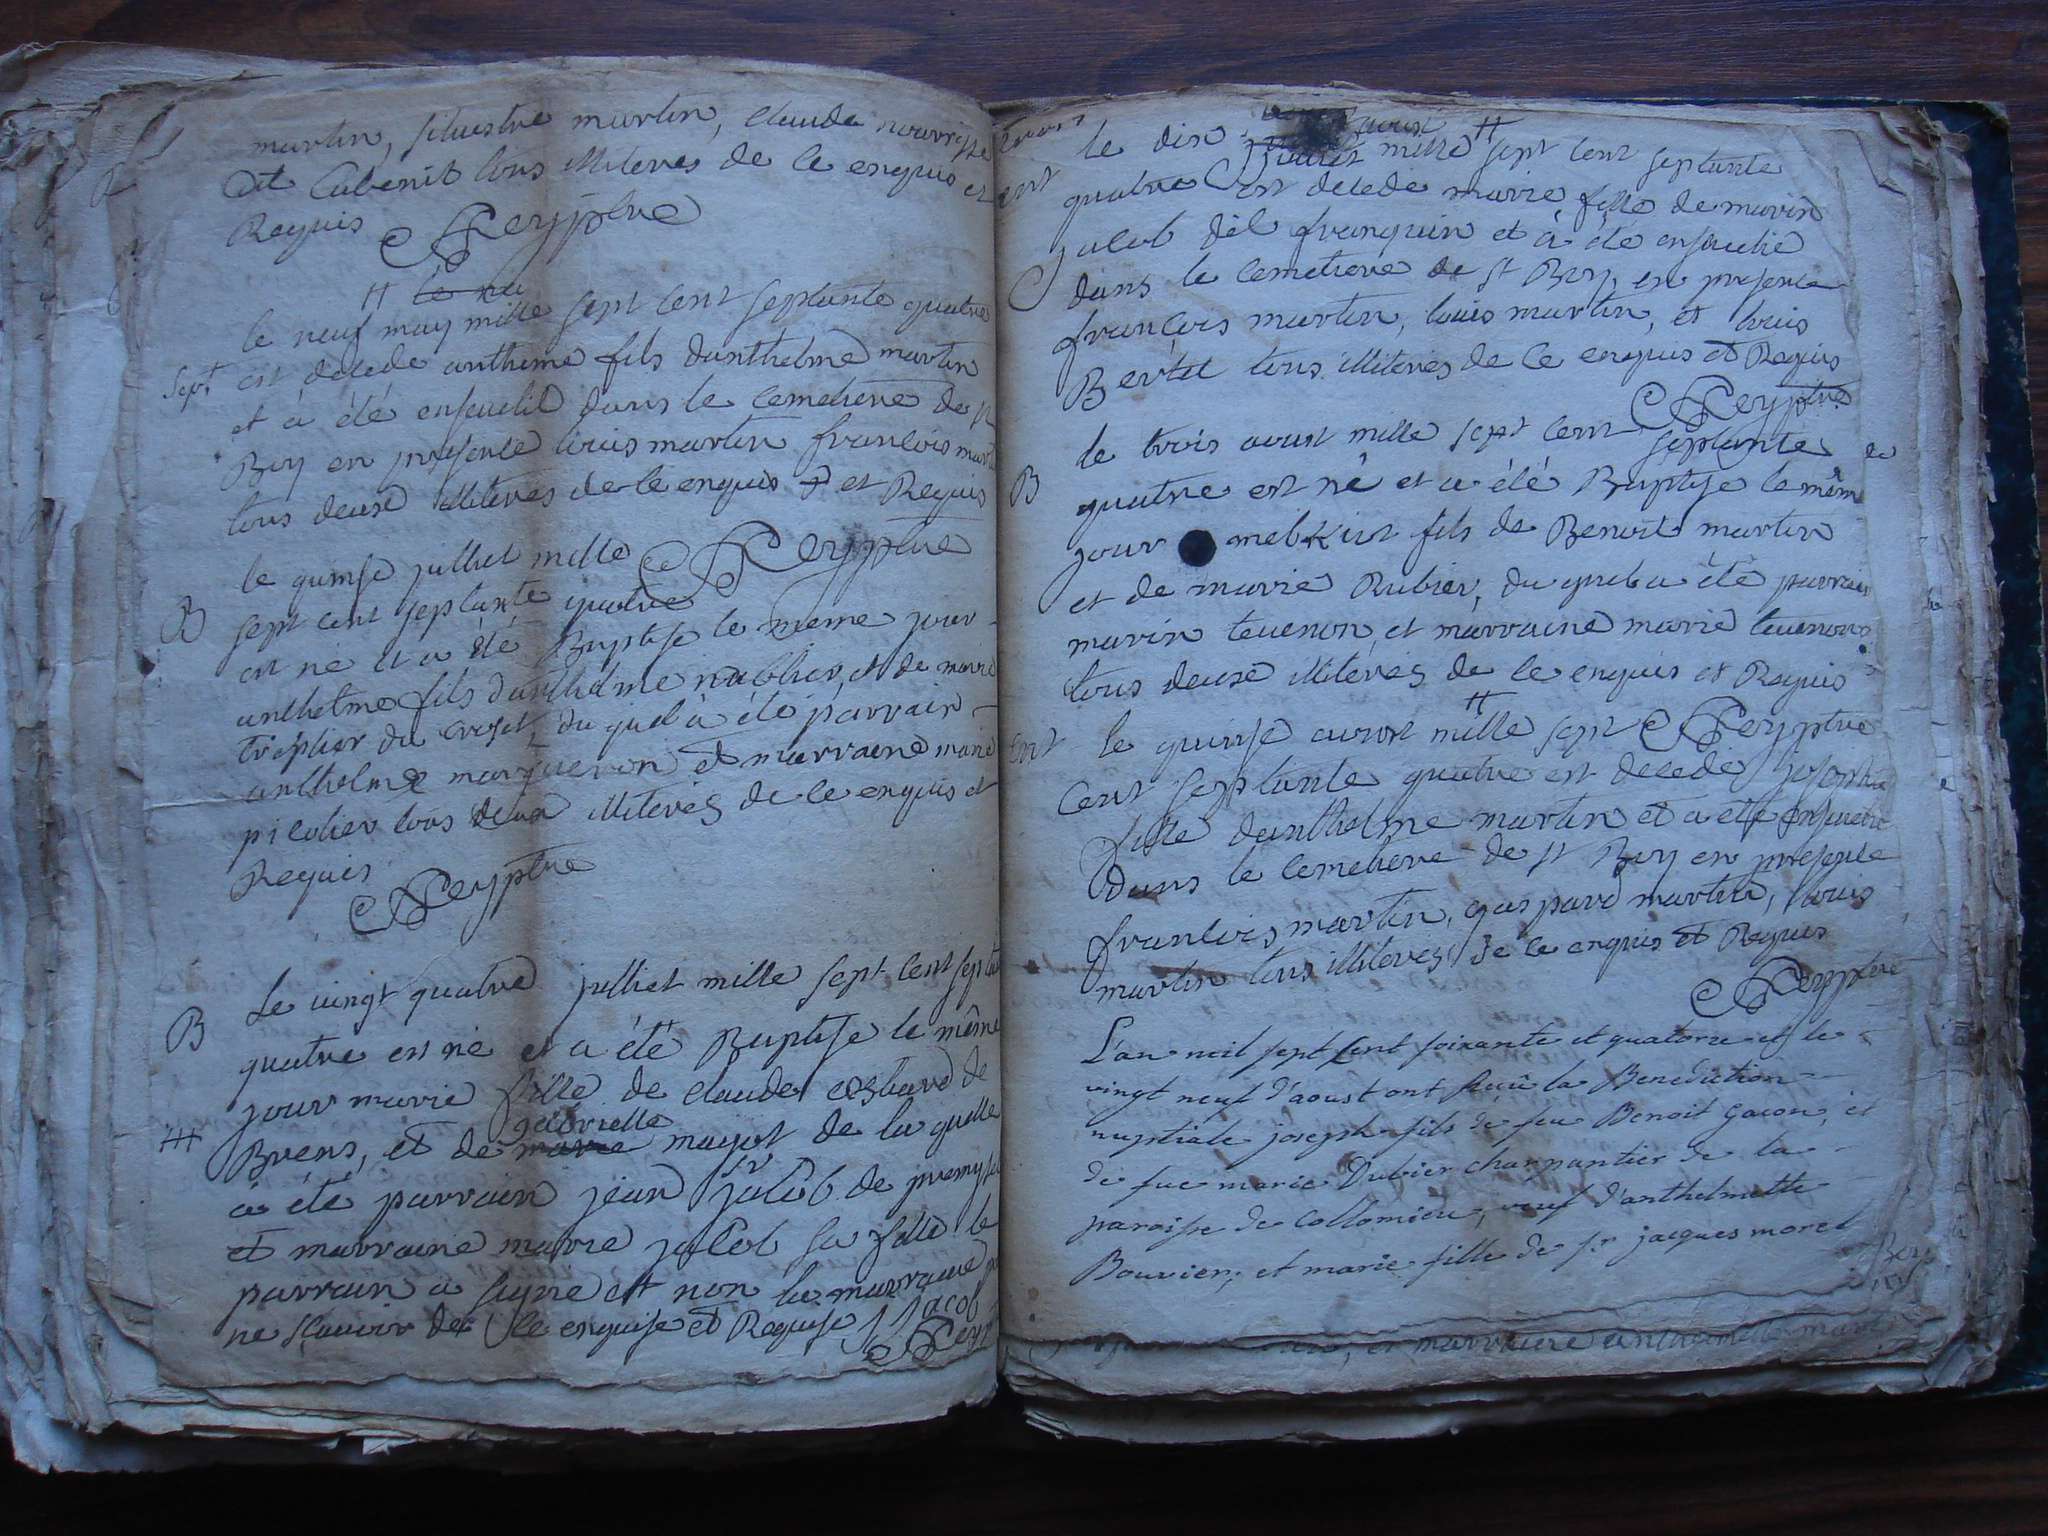 martin, silvestre martin, claude nourrisse
dit Cabenit tous illiteres de ce enquis et
Requis Rey ptre
le neuf may mille sept cent septante quatre
Sept est decede anthime fils danthelme martin
et a été enseveli dans le cemetiere de st
Boy en presence louis martin francois mart
tous deuse illiteres de ce enquis et Requis
Rey ptre
le quinse julliet mille
B sept cent septante quatre
est né et a été Baptise le meme jour
anthelme fils danthelme et de marie
du croset, du quel à été parrain
anthelme et marraine marie
tous deux illiteres de ce enquis et
Requis
Rey ptre
Le vingt quatre julliet mille sept cent septan
B quatre est né et a été Baptise le même
jour marie fille de claude de
gabrielle
Brens, et de marie mayot de la quelle
à été parrain jean jacob de premysel
et marraine marie jacob sa fille le
parrain a signe et non la marraine pour
ne scavoir de ce enquise et Requise J Jacob
Rey
le dix aoust mille sept cent septante
quatre est decede marie fille de marin
jacob dit franquin et à été ensevelie
dans le cemetiere de st Boy, en presence
françois martin, louis martin, et louis
Bertet tous illiteres de ce enquis et Requis
Rey ptre
le trois aoust mille sept cent septante
B quatre est né et a été Baptise le même
jour fils de Benoit martin
et de marie Rubier, du quel a été parrain
marin tevenon, et marraine marie tevenon
tous deuse illiteres de ce enquis et Requis
Rey ptre
le quinse aoust mille sept
cent septante quatre est decede josephte
fille danthelme martin et a été ensevelie
dans le cemetiere de st Boy en presence
francois martin, gaspard martin, louis
martin tous illiteres de ce enquis et Requis
Rey ptre
L'an mil sept cent soixante et quatorze et le
vingt neuf d'aoust ont reçû la Benediction
nuptiale joseph fils de feu Benoit gacon, et
de fue marie Dubier charpantier de la
paroisse de Collomieu, veuf d'anthelmette
Bouvier; et marie fille de sr jacques morel
et marraine anthelmette martin